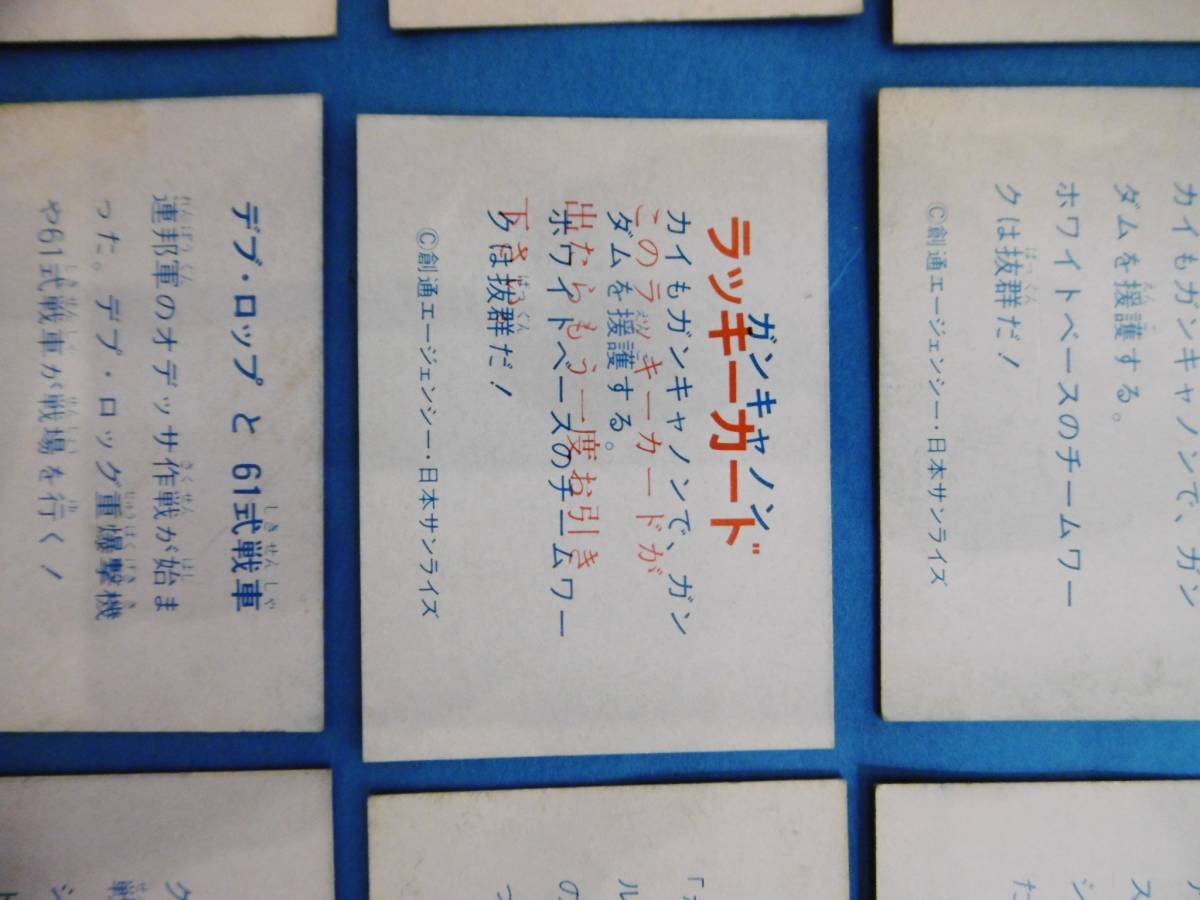 カイもガンキャノンで、ガン
ダムを援護する。
ホワイトベースのチームワー
クは抜群だ！
©創通エージェンシー・日本サンライズ
ガンキャノン
ラッキーカード
カイもガンキャノンで、ガン
このラッキーカードが
ダムを援護する。
出たらもう一度お引き
ホワイトベースのチームワー
下さい
クは抜群だ！
©創通エージェンシー・日本サンライズ
デブ・ロップ と 61式戦車
連邦軍のオデッサ作戦が始ま
った。デブ・ロック重爆撃機
や61式戦車が戦場を行く！